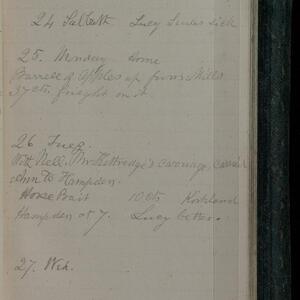 24 Sabbath Lucy Sick
25. Monday home
Barrel of Apples up from Mills
37 cts freight on it
26 Tues.
Nell. Mr Kittredge's Carriage, Carried
Ann to Hampden.
Horse Bait 10 cts Kirkland
Hampden at 7. Lucy better.
27. Wed.